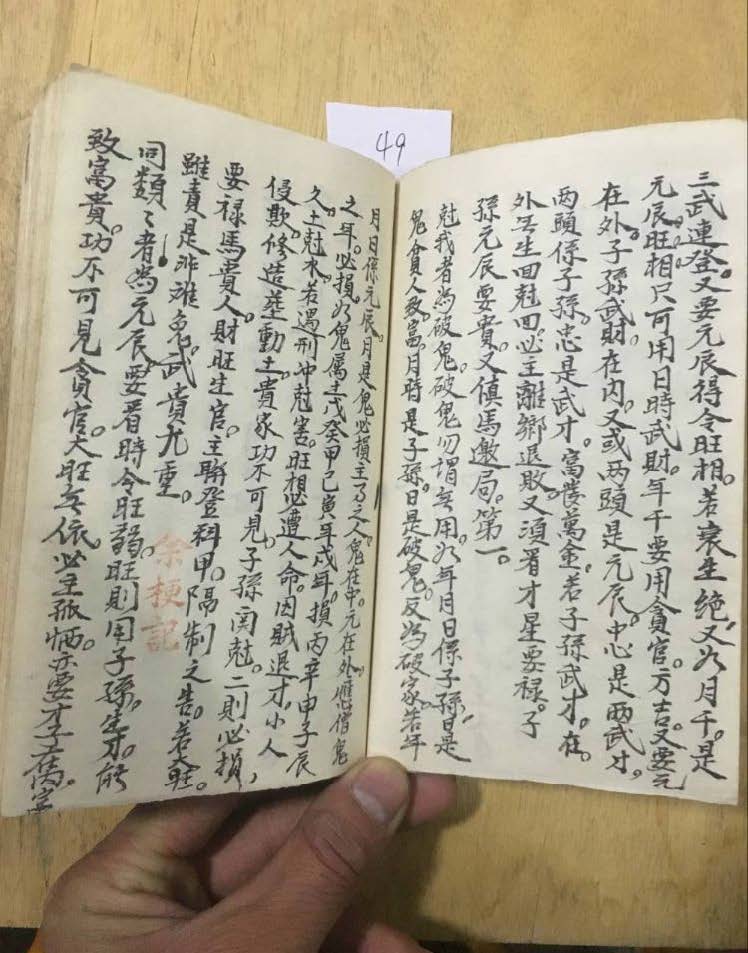 49
三武連登。又要元辰得令旺相。若衰生絶又如月干。是
元辰。旺相只可用日時武財。年干要用貪官。方吉。又要元
在外。子孫武財。在内。又或两頭是元辰。中心是两武才。
两頭係子孫。忠是武才。富発萬金。若子孫武才。在。
外。生回尅回。必主離鄉退敗。又須看才星要禄。子
孫元辰要貴。又馬邀局。第一。
尅我者為破鬼。破鬼勿謂無用。如年月日係子孫。日是
鬼。貪人致富。月時是子孫。日是破鬼。反為破家。若年
月日係元辰。月是鬼必損主事之人。鬼在中。元在外。應僧鬼
之年。必損。如鬼属土。戊癸甲己寅年戌年。損丙辛申子辰
久。土尅水。若遇刑冲尅害。旺相必遭人命。因賊退才。小人
侵欺。修造塟動土。貴家功不可見。子孫関尅。二則必損
要禄馬貴人。財旺生官。主聨登科甲。隔制之吉。若大旺。
雖貴是非难免。武貴九重。
余梗記
同類々者為元辰。要看時令旺弱。旺則用子孫。生才。能
致富貴。功不可見貪官。大旺無依。必主孤恓。亦要才子在